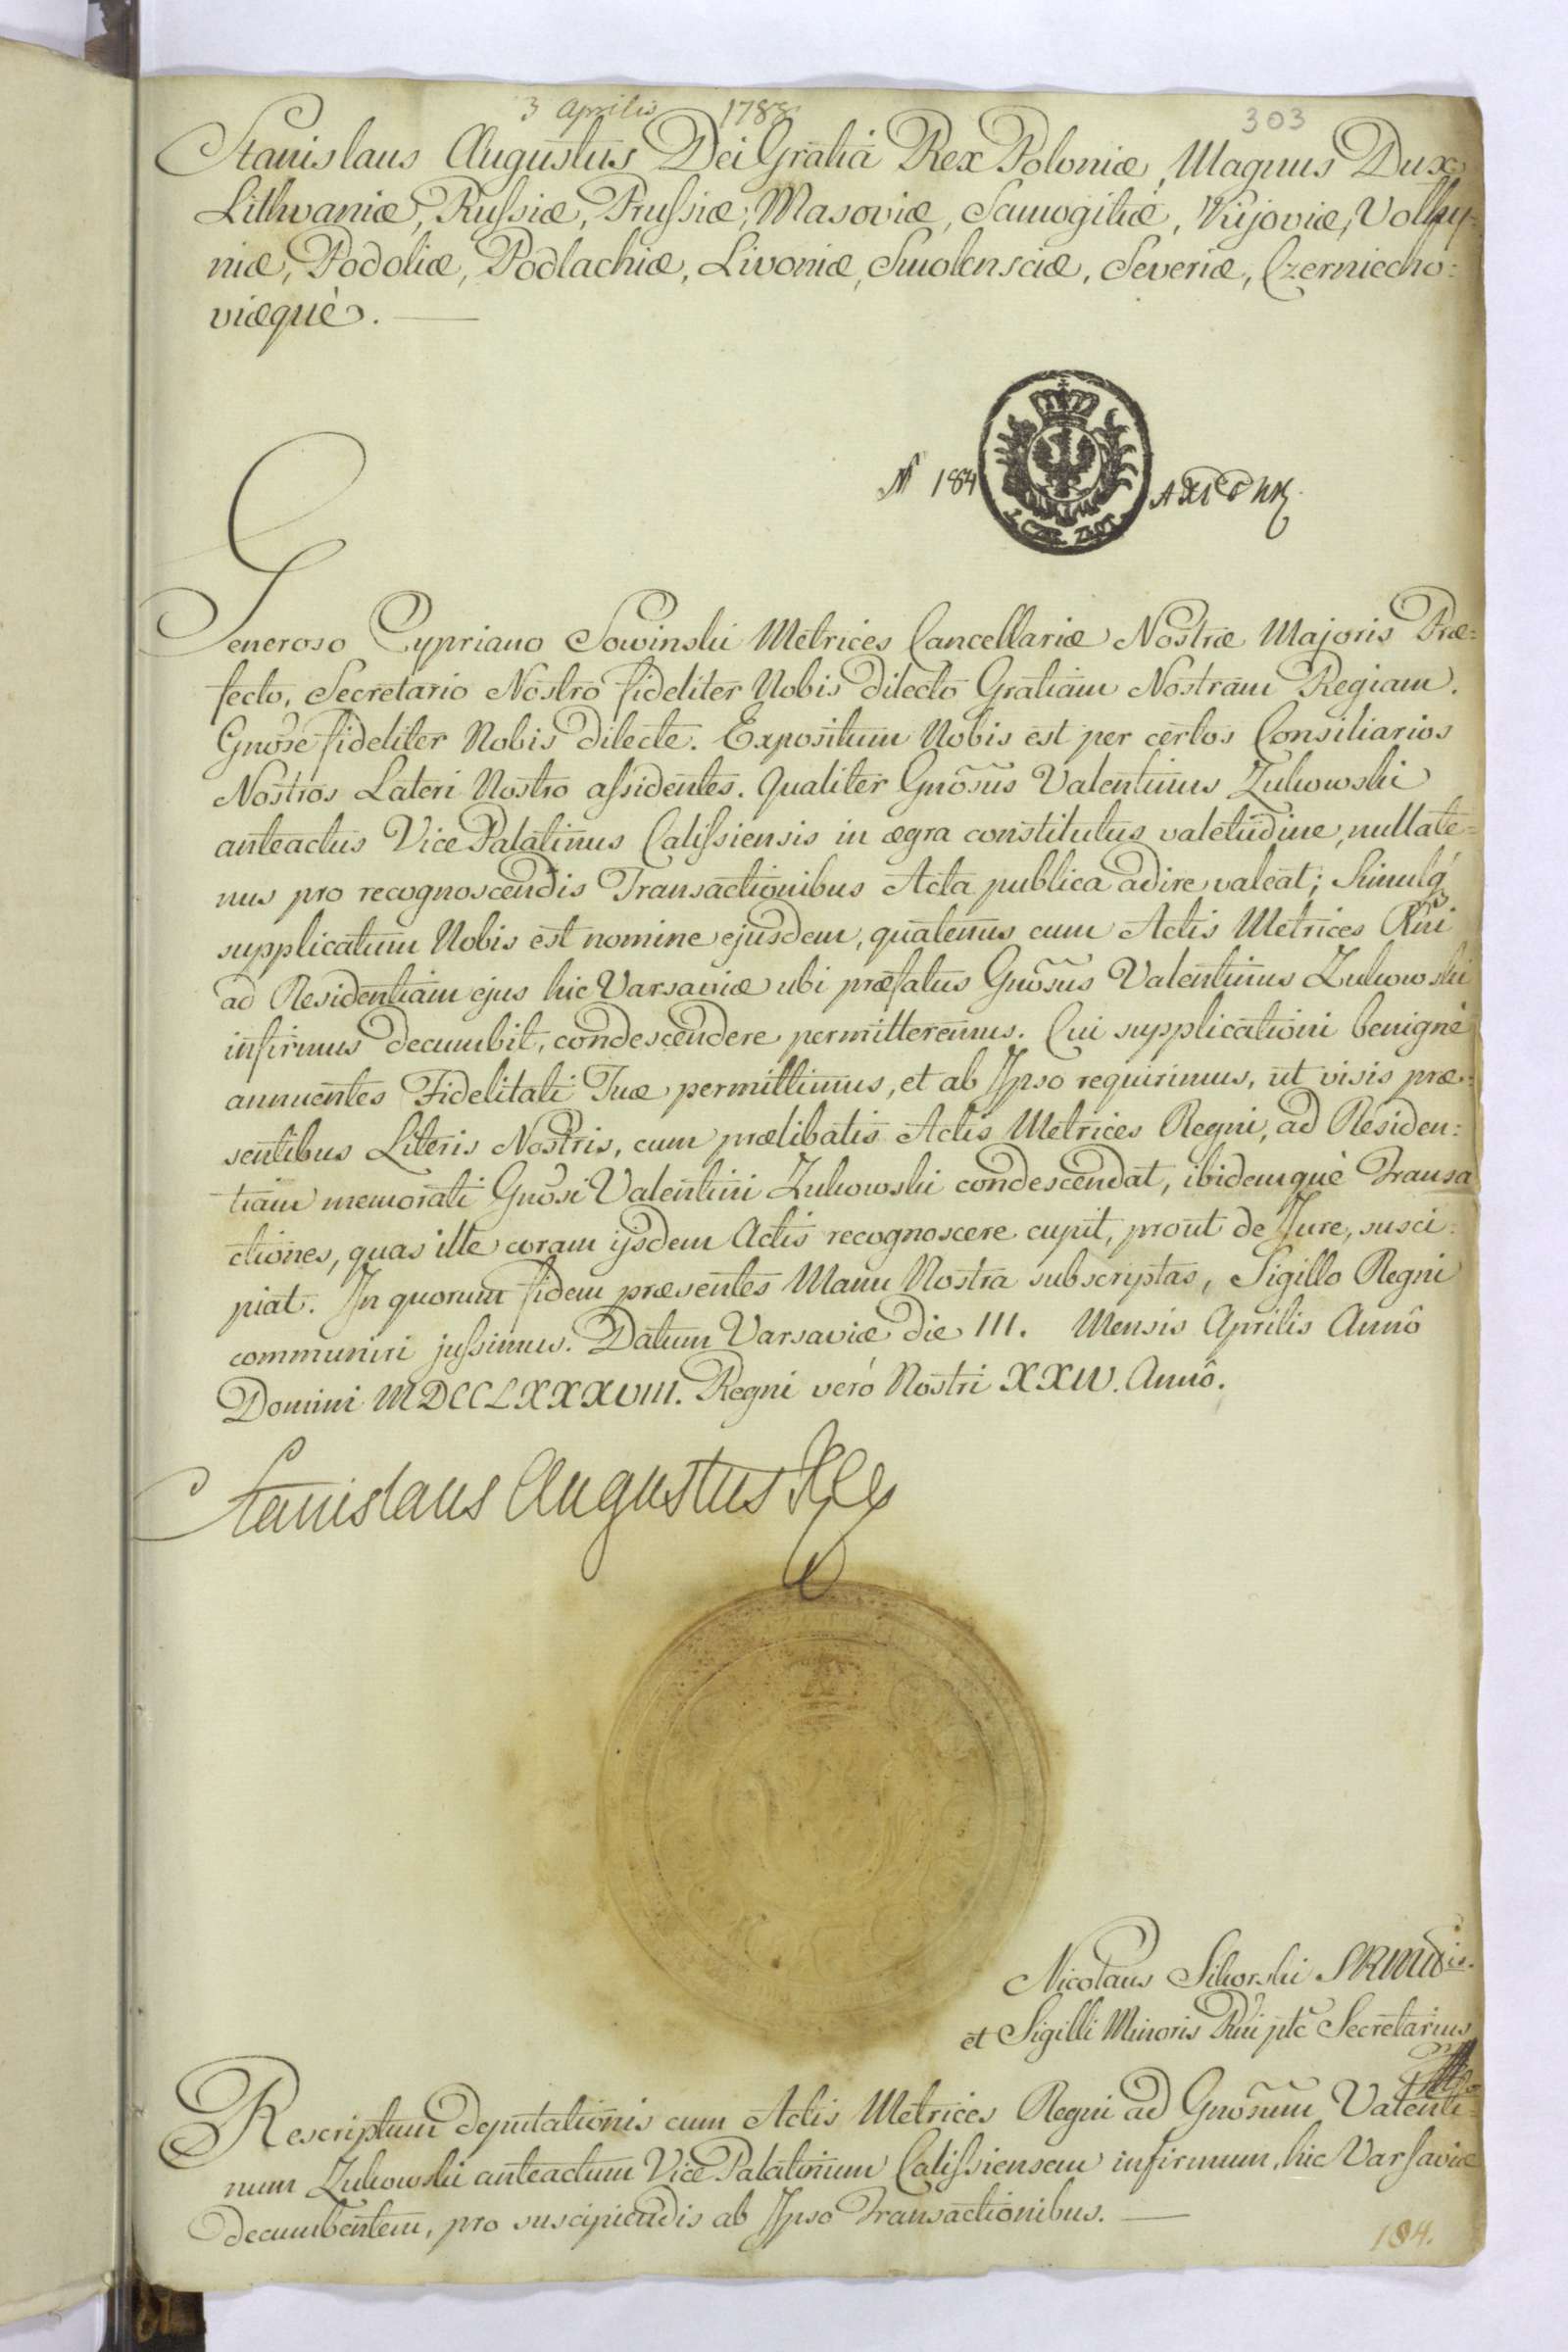 3 Aprilis 1788.
303
Stanislaus Augustus Dei Gratiâ Rex Poloniæ, Magnus Dux
Lithvaniæ, Rußsiæ, Prußsiæ, Masoviæ, Samogitiæ, Kijoviæ, Volhy-
niæ, Podoliæ, Podlachiæ, Livoniæ, Smolensciæ, Severiæ, Czerniecho:
viæquè.
N 184
1. CZE. ZŁOT.
Generoso Cypriano Sowinski Metrices Cancellariæ Nostræ Majoris Præ=
fecto, Secretario Nostro fideliter Nobis dilecto Gratiam Nostram Regiam.
Gnõse fideliter Nobis dilecte. Expositum Nobis est per certos Consiliarios
Nostros Lateri Nostro aßidentes. Qualiter Gnõsus Valentinus Zukowski
anteactus Vice Palatinus Calißiensis in ægra constitutus valetudine, nullate=
nus pro recognoscendis Transactionibus Acta publica adire valeat; Simulq́
supplicatum Nobis est nomine ejusdem, quatenus cum Actis Metrices Rñi
ad Residentiam ejus hic Varsaviæ ubi præfatus Gnõsus Valentinus Zukowski
infirmus decumbit, condescendere permitteremus. Cui supplicationi benignè
annuentes Fidelitati Tuæ permittimus, et ab Ipso requirimus, ut visis præ=
sentibus Literis Nostris, cum prælibatis Actis Metrices Regni, ad Residen:
tiam memorati Gnõsi Valentini Zukowski condescendat, ibidemquè Transa
ctiones, quas ille coram ijsdem Actis recognoscere cupit, prout de Jure, susci:
piat. In quorum fidem præsentes Manu Nostra subscriptas, Sigillo Regni
communiri jußimus. Datum Varsaviæ die III. Mensis Aprilis Annô
Domini MDCCLXXXVIII. Regni verò Nostri XXIV. Annô.
Stanislaus Augustus Rex
Nicolaus Sikorski SRMttis.
et Sigilli Minoris Rñi ptẽ Secretarius
Rescriptum deputationis cum Actis Metrices Regni ad Gnõsum Valenti=
num Zukowski anteactum Vice Palatinum Calißiensem infirmum, hic Varsaviæ
decumbentem, pro suscipiendis ab Ipso Transactionibus.
184.